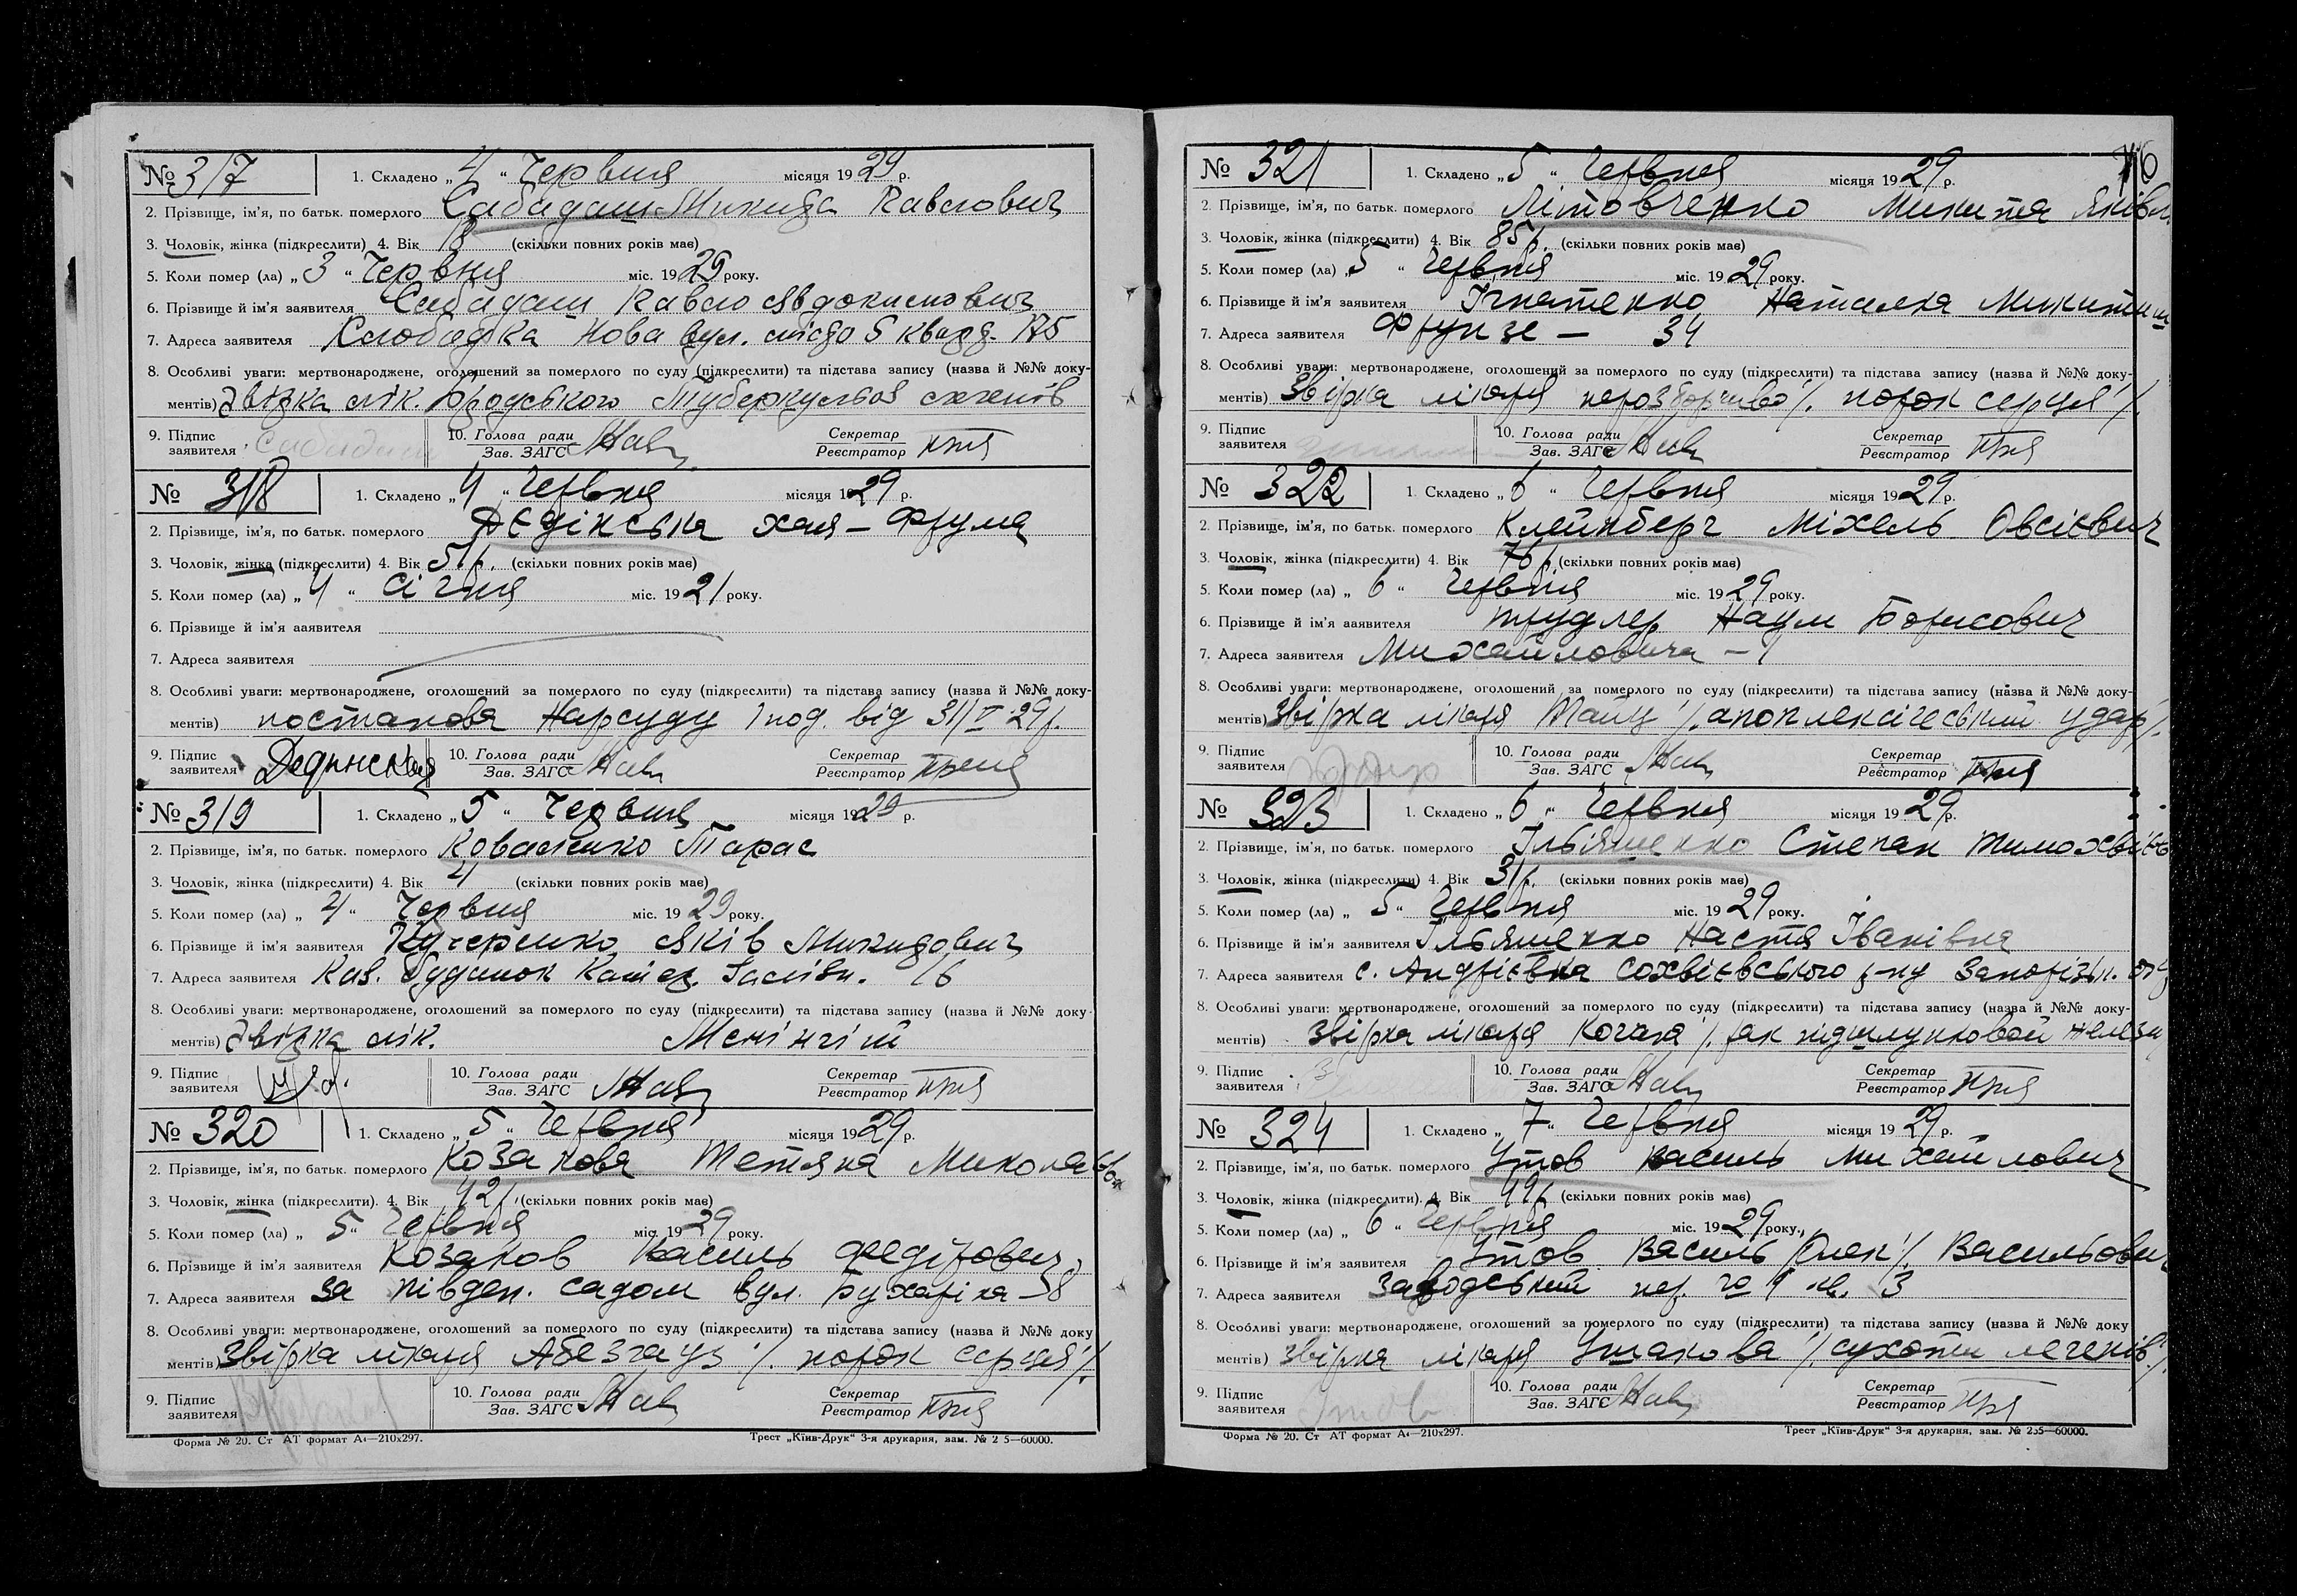 № 317 1. Складено „4“ Червня місяця 1929 р.
2. Прізвище, ім'я, по батьк. померлого Сабадаш Микита Павлович
3. Чоловік, жінка (підкреслити) 4. Вік 18 (скільки повних років має)
5. Коли помер (ла) „3“ Червня міс. 1929 року.
6. Прізвище й ім'я заявителя Сабадаш Павло Явдокимович
7. Адреса заявителя Слободка Нова вул. місто 5 кварт. 175
8. Особливі уваги: мертвонароджене, оголошений за померлого по суду (підкреслити) та підстава запису (назва й №№ доку-
ментів) Звірка лік. Бродського Туберкульоз легенів
9. Підпис заявителя Сабадаш 10. Голова ради Зав. ЗАГС Секретар Реєстратор
№ 318 1. Складено „4“ Червня місяця 1929 р.
2. Прізвище, ім'я, по батьк. померлого Дєдінська Хая-Фрума
3. Чоловік, жінка (підкреслити) 4. Вік 51 р. (скільки повних років має)
5. Коли помер (ла) „4“ Січня міс. 1921 року.
6. Прізвище й ім'я заявителя
7. Адреса заявителя
8. Особливі уваги: мертвонароджене, оголошений за померлого по суду (підкреслити) та підстава запису (назва й №№ доку-
ментів) постанова Нарсуду 1 под. від 31/V 29 р.
9. Підпис заявителя Дединская 10. Голова ради Зав. ЗАГС Секретар Реєстратор
№ 319 1. Складено „5“ Червня місяця 1929 р.
2. Прізвище, ім'я, по батьк. померлого Коваленко Тарас
3. Чоловік, жінка (підкреслити) 4. Вік 4 (скільки повних років має)
5. Коли помер (ла) „4“ Червня міс. 1929 року.
6. Прізвище й ім'я заявителя Кучеренко Яків Микитович
7. Адреса заявителя Каз. будинок 16
8. Особливі уваги: мертвонароджене, оголошений за померлого по суду (підкреслити) та підстава запису (назва й №№ доку-
ментів) Звірка лік. Менінгіт
9. Підпис заявителя 10. Голова ради Зав. ЗАГС Секретар Реєстратор
№ 320 1. Складено „5“ Червня місяця 1929 р.
2. Прізвище, ім'я, по батьк. померлого Козакова Тетяна Миколаєвна
3. Чоловік, жінка (підкреслити). 4. Вік 42 р. (скільки повних років має)
5. Коли помер (ла) „5“ Червня міс. 1929 року.
6. Прізвище й ім'я заявителя Козаков Василь Федірович
7. Адреса заявителя за півден. садом вул. Бухаріна — 58
8. Особливі уваги: мертвонароджене, оголошений за померлого по суду (підкреслити) та підстава запису (назва й №№ доку
ментів) Звірка лікаря Абезгауз /. порок серця /.
9. Підпис заявителя 10. Голова ради Зав. ЗАГС Секретар Реєстратор
Форма № 20. Ст АТ формат А4—210х297. Трест „Київ-Друк“ 3-я друкарня, зам. № 2 5—60000.
76
№ 321 1. Складено „5“ Червня місяця 1929 р.
2. Прізвище, ім'я, по батьк. померлого Літовченко Микита Яківл.
3. Чоловік, жінка (підкреслити) 4. Вік 85 р. (скільки повних років має)
5. Коли помер (ла) „5“ Червня міс. 1929 року.
6. Прізвище й ім'я заявителя Ігнатенко Наталка Микитиш
7. Адреса заявителя Фрунзе — 34
8. Особливі уваги: мертвонароджене, оголошений за померлого по суду (підкреслити) та підстава запису (назва й №№ доку-
ментів) Звірка лікаря нерозборчиво /. порок серця /.
9. Підпис заявителя 10. Голова ради Зав. ЗАГС Секретар Реєстратор
№ 322 1. Складено „6“ Червня місяця 1929 р.
2. Прізвище, ім'я, по батьк. померлого Клейнберг Міхель Овсієвич
3. Чоловік, жінка (підкреслити) 4. Вік 76 р. (скільки повних років має)
5. Коли помер (ла) „6“ Червня міс. 1929 року.
6. Прізвище й ім'я заявителя Трудлер Наум Борисович
7. Адреса заявителя Михайловича — 4
8. Особливі уваги: мертвонароджене, оголошений за померлого по суду (підкреслити) та підстава запису (назва й №№ доку-
ментів) Звірка лікаря Тайц /. апоплексічеський удар /.
9. Підпис заявителя 10. Голова ради Зав. ЗАГС Секретар Реєстратор
№ 323 1. Складено „6“ Червня місяця 1929 р.
2. Прізвище, ім'я, по батьк. померлого Ільяшенко Степан Тимохвієв
3. Чоловік, жінка (підкреслити) 4. Вік 31 р. (скільки повних років має)
5. Коли помер (ла) „5“ Червня міс. 1929 року.
6. Прізвище й ім'я заявителя Ільяшенко Настя Іванівна
7. Адреса заявителя с. Андрієвка Сохвієвського р-ну Запорізьк. окр
8. Особливі уваги: мертвонароджене, оголошений за померлого по суду (підкреслити) та підстава запису (назва й №№ доку-
ментів) Звірка лікаря Когана /. рак підшлунковой желези
9. Підпис заявителя 10. Голова ради Зав. ЗАГС Секретар Реєстратор
№ 324 1. Складено „7“ Червня місяця 1929 р.
2. Прізвище, ім'я, по батьк. померлого Утов Василь Михайлович
3. Чоловік, жінка (підкреслити). 4. Вік 49 р. (скільки повних років має)
5. Коли помер (ла) „6“ Червня міс. 1929 року.
6. Прізвище й ім'я заявителя Утов Василь /Олек/. Васильович
7. Адреса заявителя Заводський пер. 9 кв. 3
8. Особливі уваги: мертвонароджене, оголошений за померлого по суду (підкреслити) та підстава запису (назва й №№ доку
ментів) Звірка лікаря Ушакова /. сухоти легенів /.
9. Підпис заявителя Утов 10. Голова ради Зав. ЗАГС Секретар Реєстратор
Форма № 20. Ст АТ формат А4—210х297. Трест „Київ-Друк“ 3-я друкарня, зам. № 255—60000.